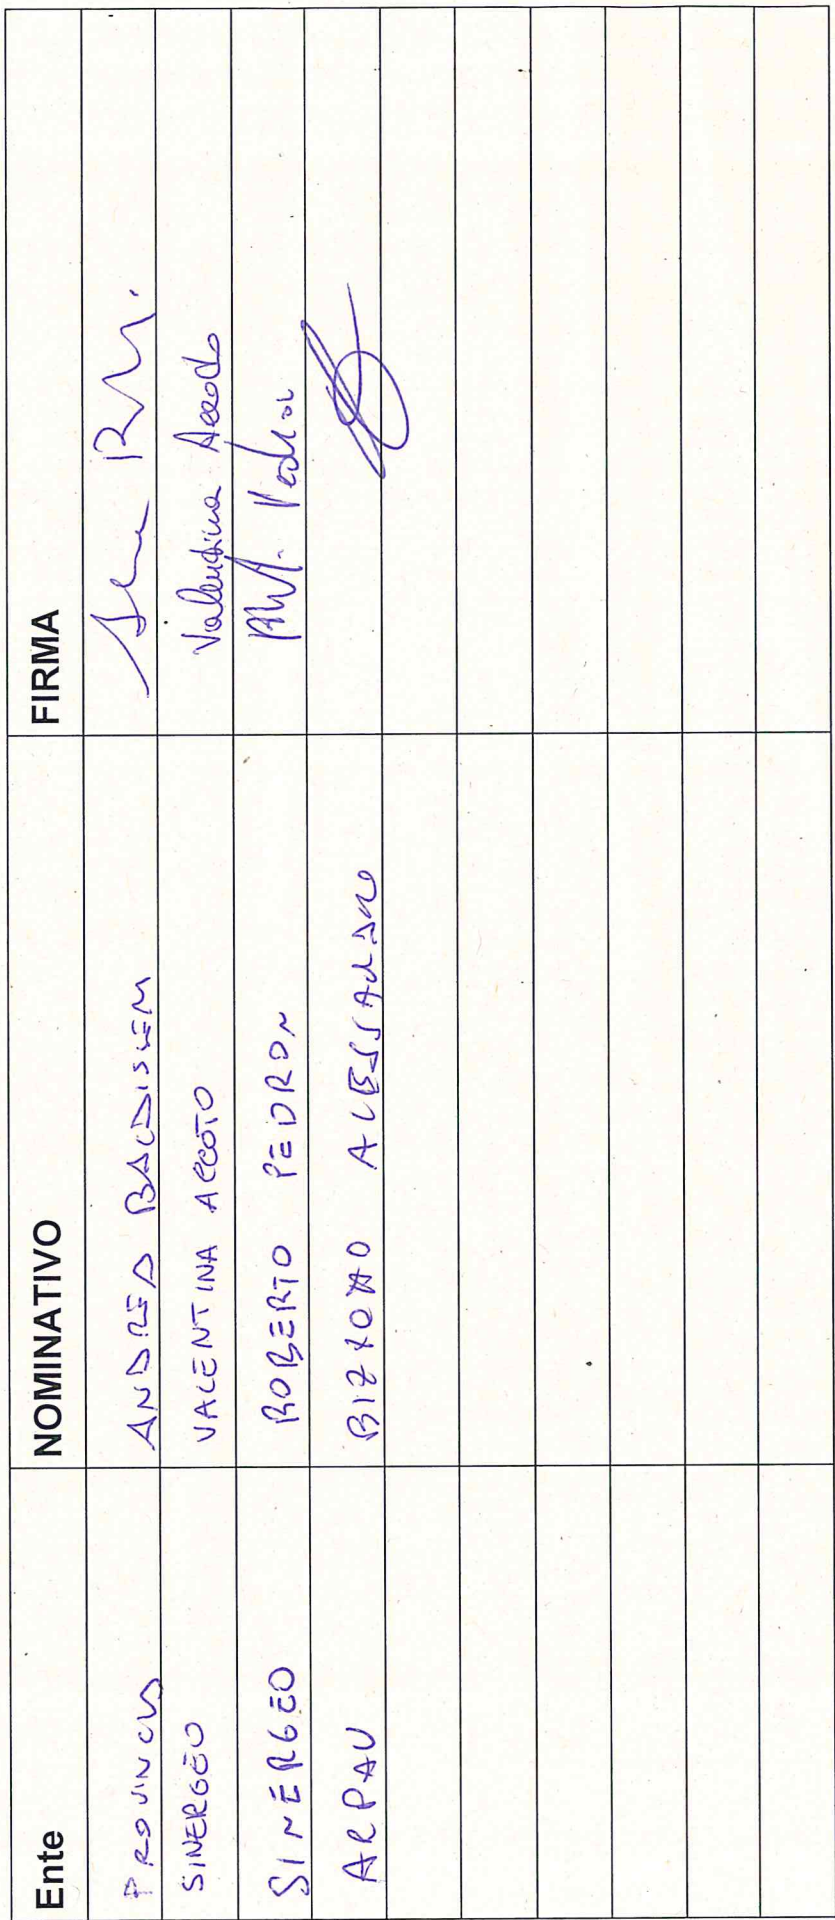 Ente NOMINATIVO FIRMA
PROVINCIA ANDREA
SINERGEO VALENTINA ACCOTO Valentina Accoto
SINERGEO ROBERTO PEDRON
ARPAV BIZZOTTO ALESSANDRO